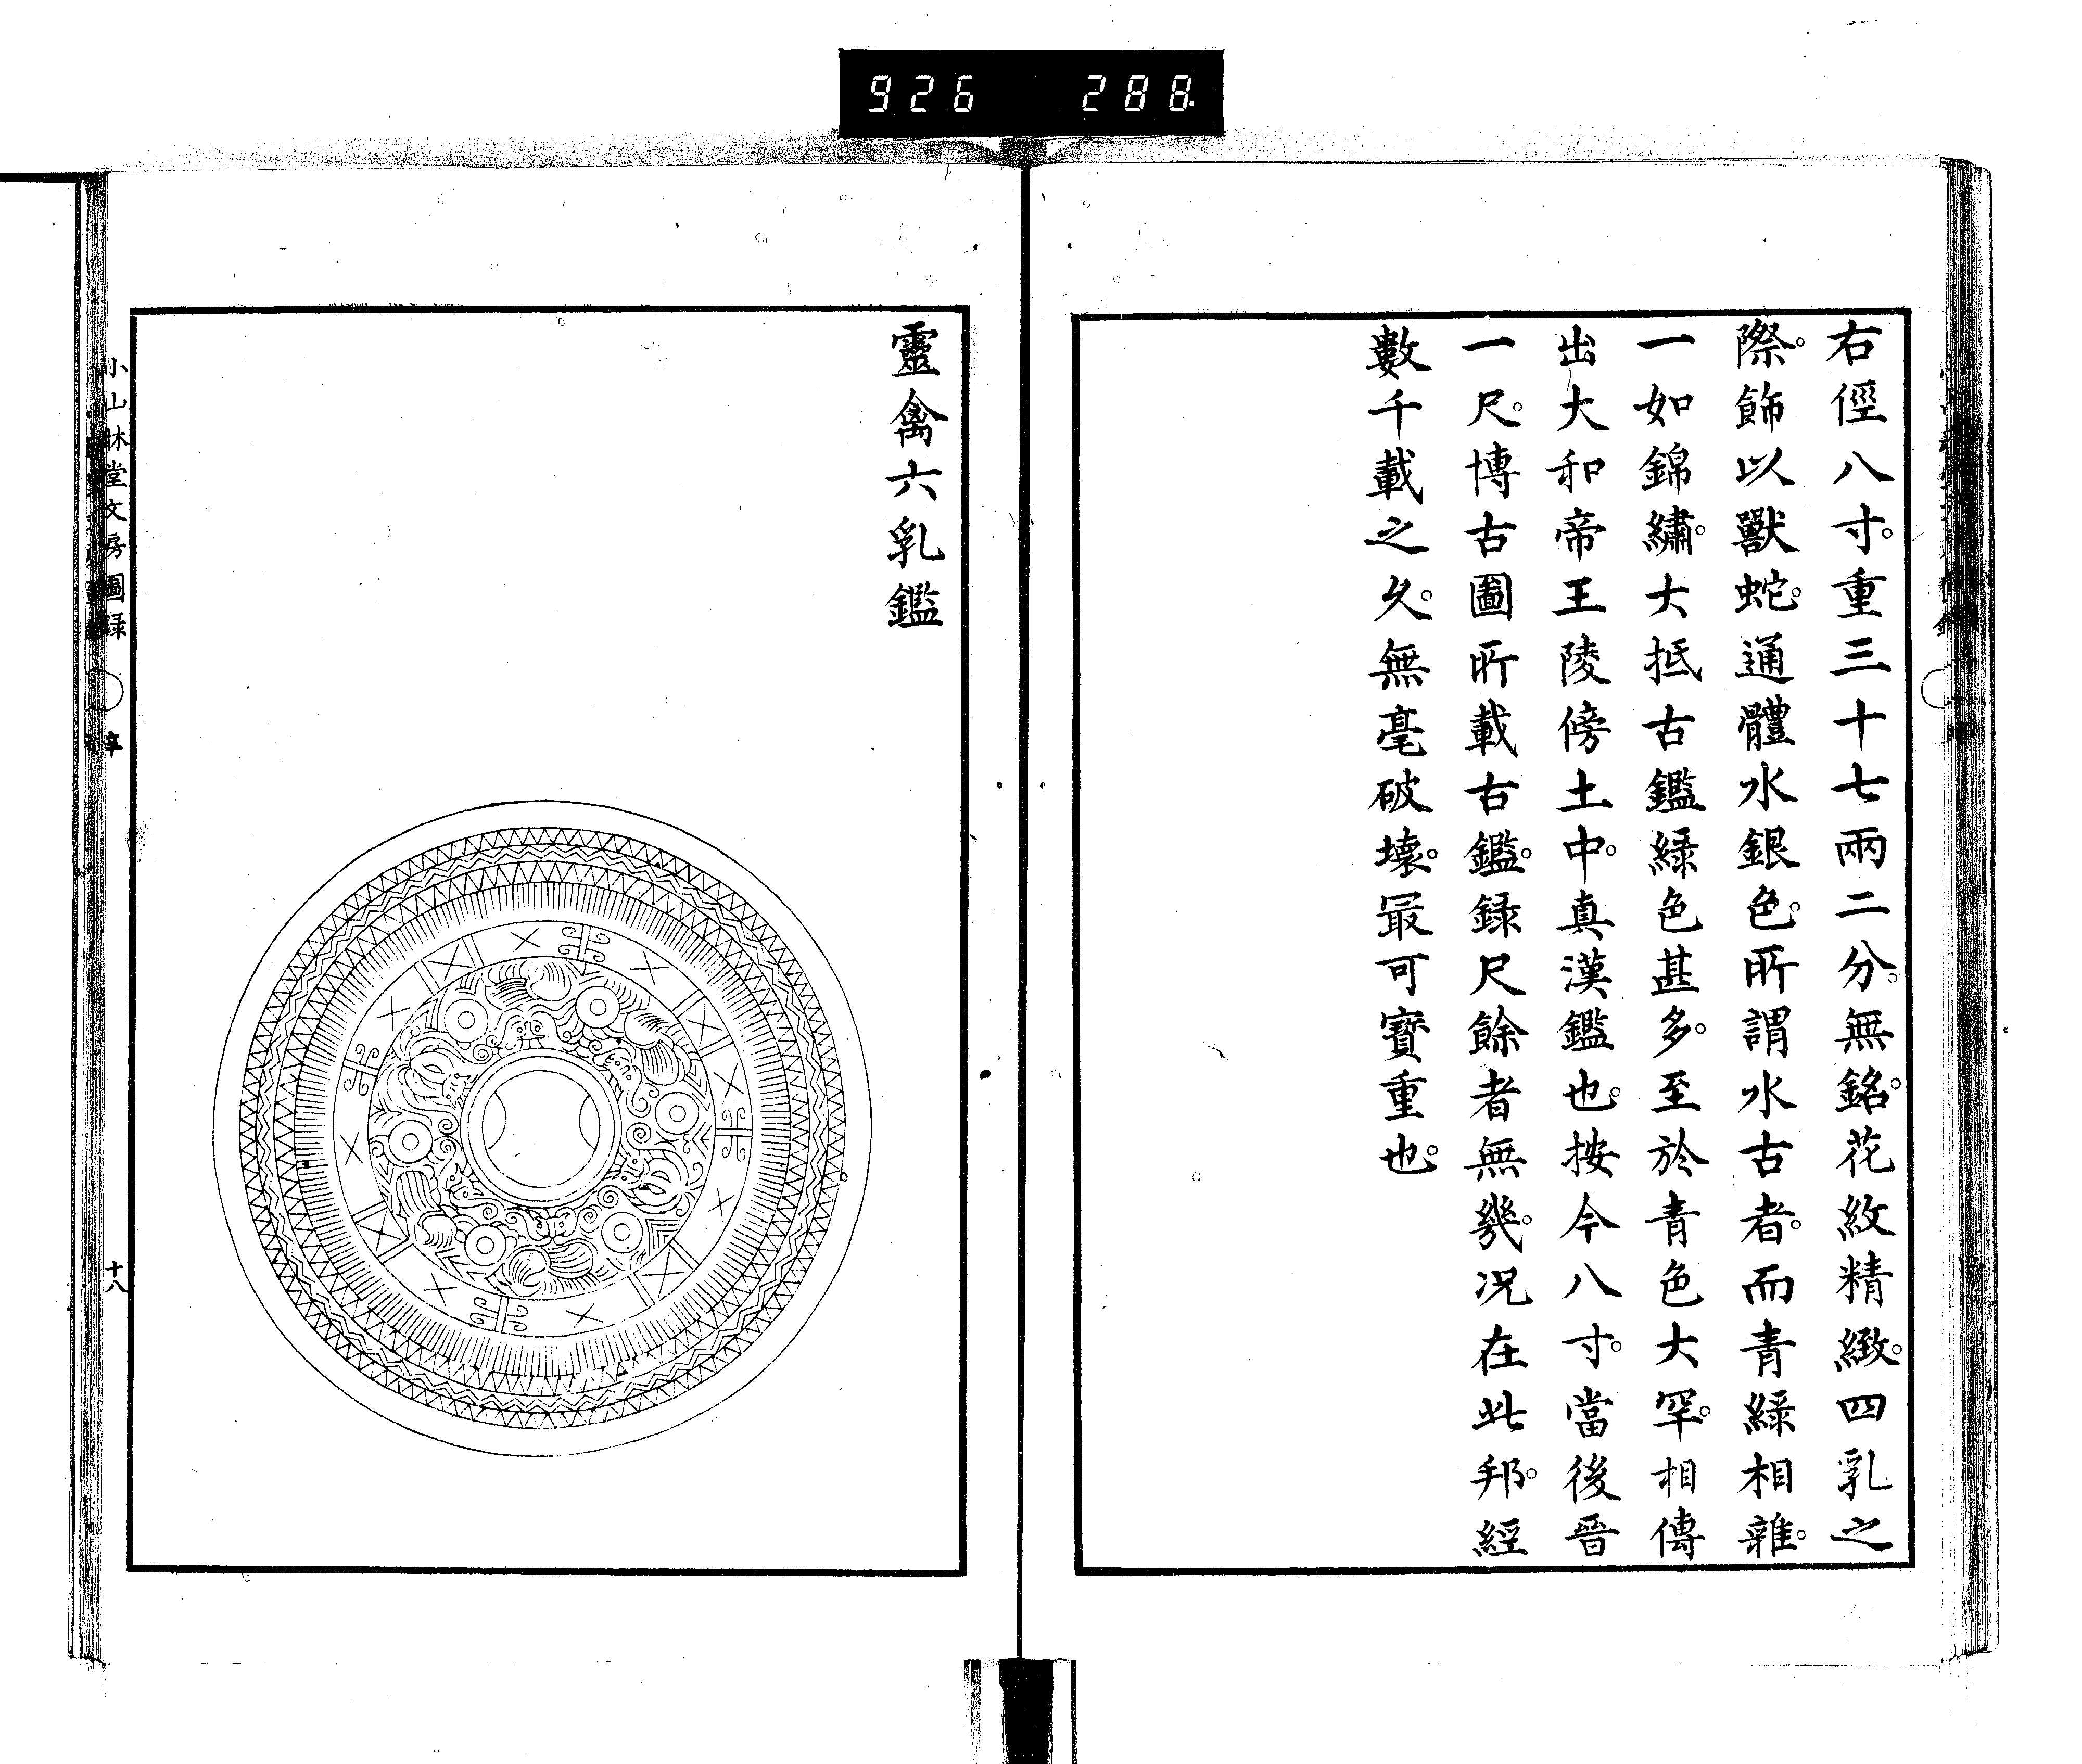 926 288
右徑八寸。重三十七兩二分。無銘。花紋精緻。四乳之
際。飾以獸蛇。通體水銀色。所謂水古者。而青綠相雜。
一如錦繡。大抵古鑑綠色甚多。至於青色大罕。相傳
出大和帝王陵傍土中。真漢鑑也。按今八寸。當後晉
一尺。博古圖所載古鑑。録尺餘者無幾。况在此邦。經
數千載之久。無毫破壞。最可寶重也。
靈禽六乳鑑
小山林堂文房圖録
十八